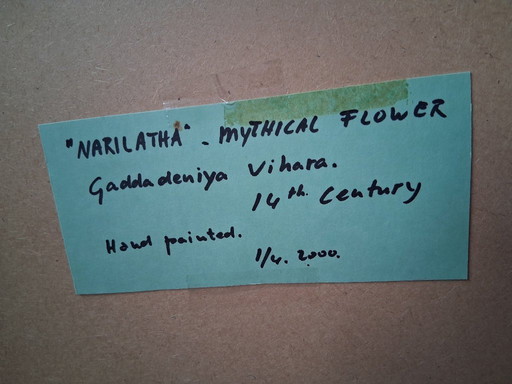 "NARILATHA" - MYTHICAL FLOWER
Gaddadeniya Vihara.
14th Century
Hand painted.
1/4. 2000.